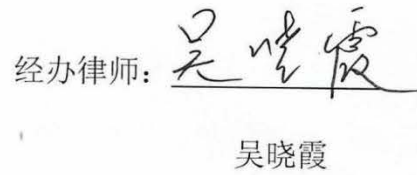 经办律师：吴晓霞
吴晓霞